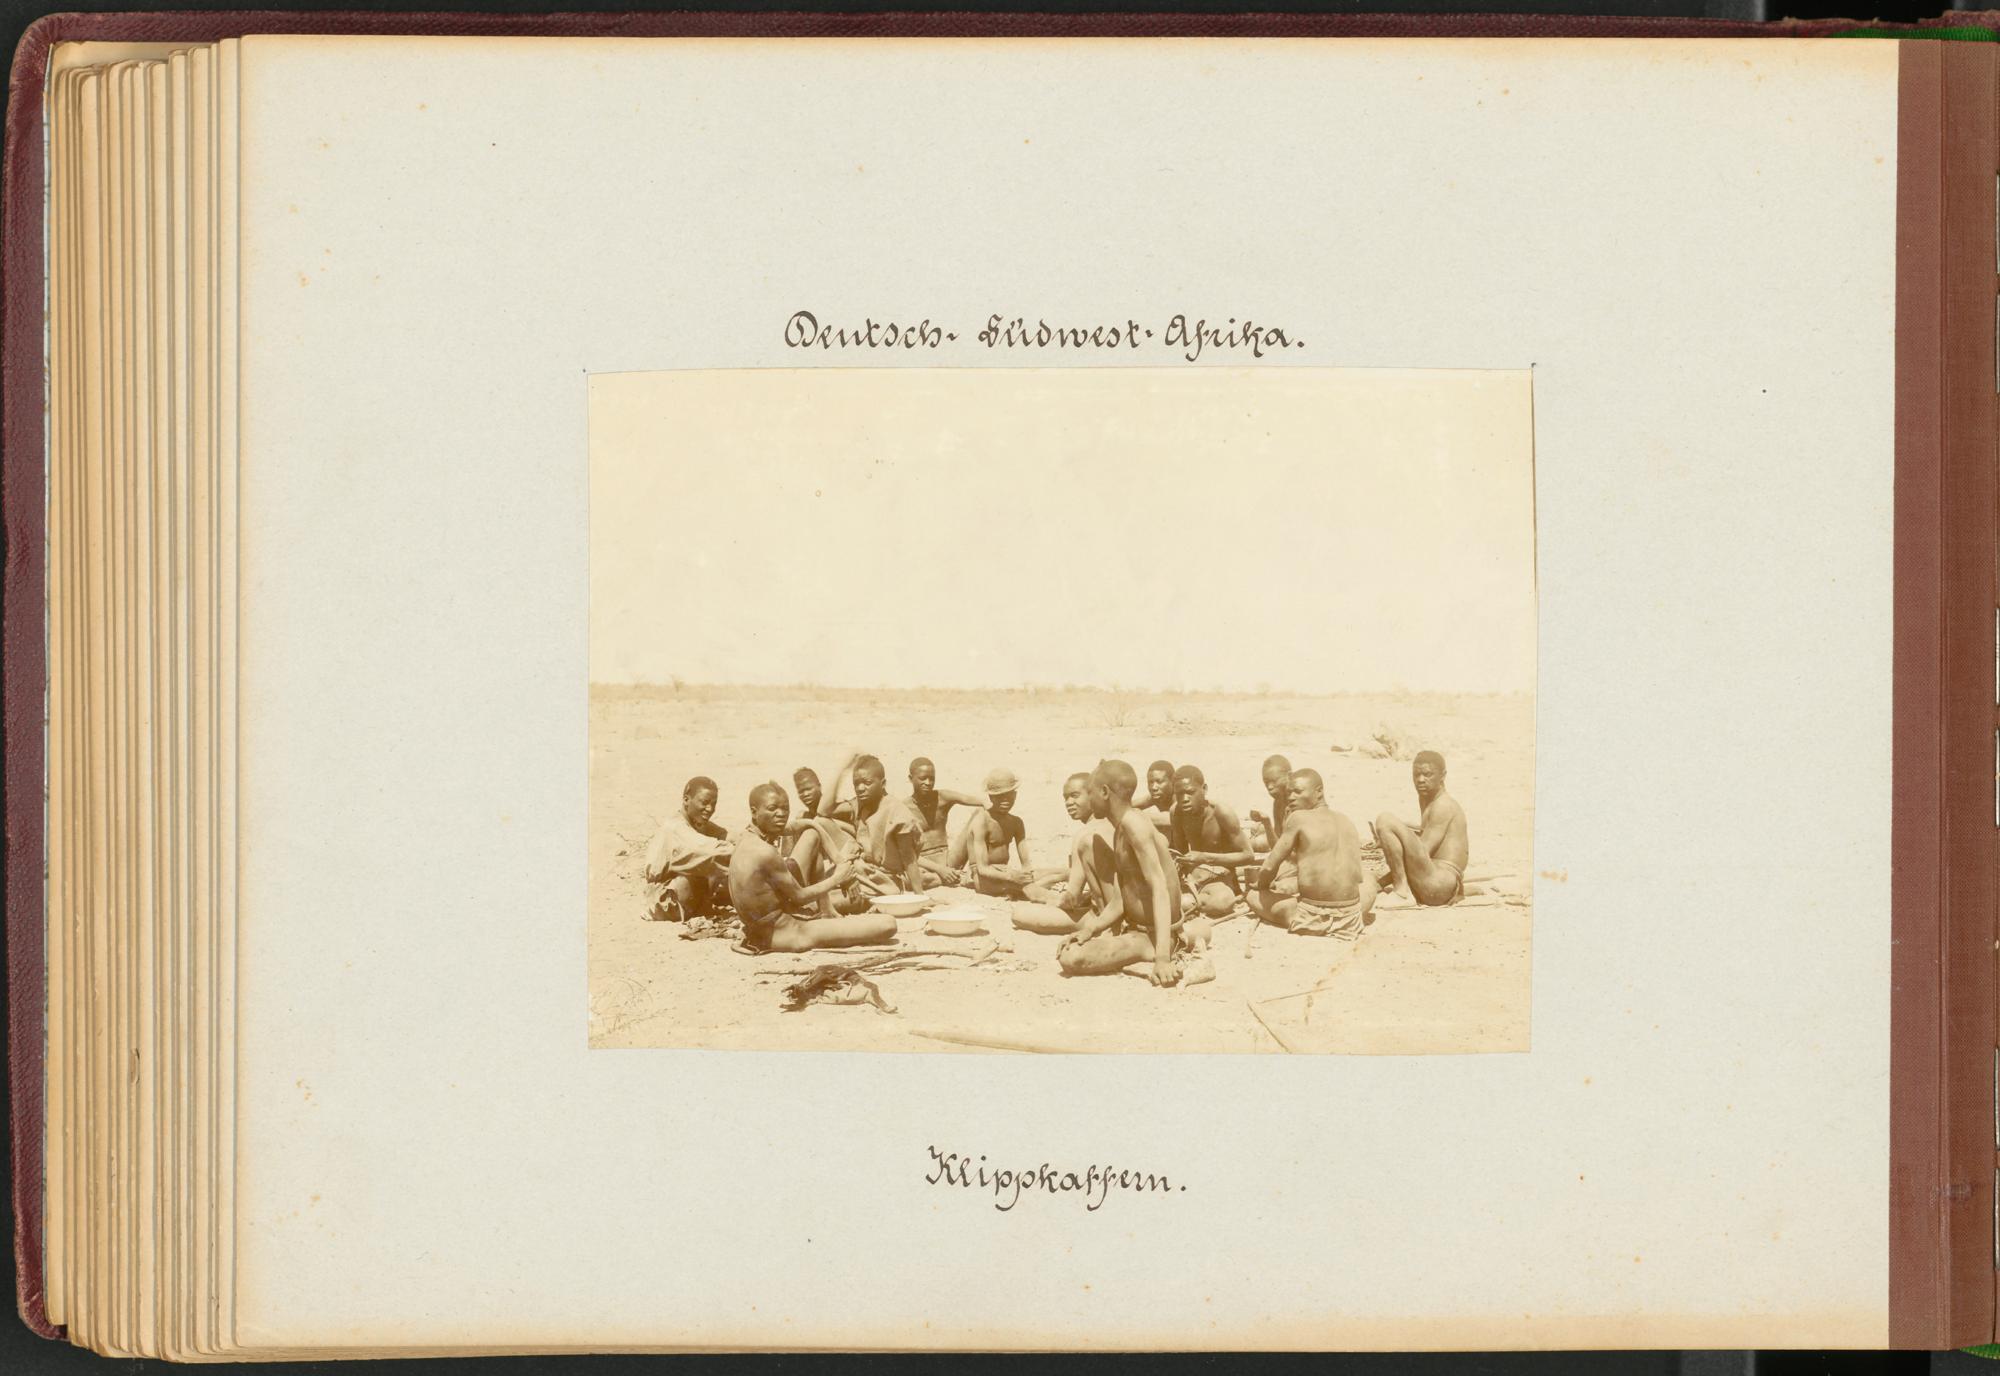 Deutsch-Südwest-Afrika.
Klippkaffern.